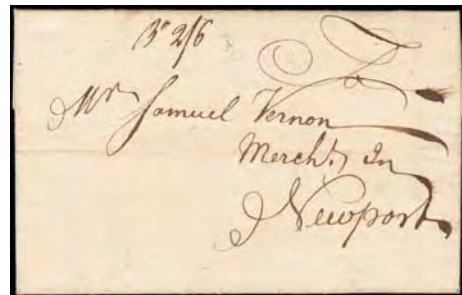 Br 2/6
Mr Samuel Vernon
Mercht. In
Newport